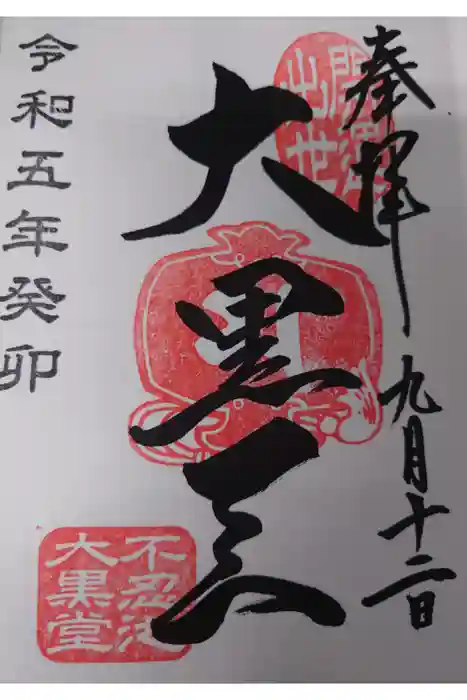 奉拝 九月十二日
開運
出世
大黒天
不忍池
大黒堂
令和五年癸卯